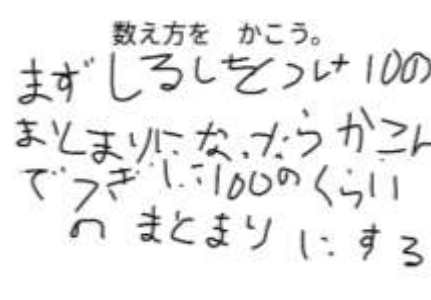 数え方を かこう。
まずしるしをつけ10の
まとまりになったらかこん
でつぎに100のくらい
のまとまりにする